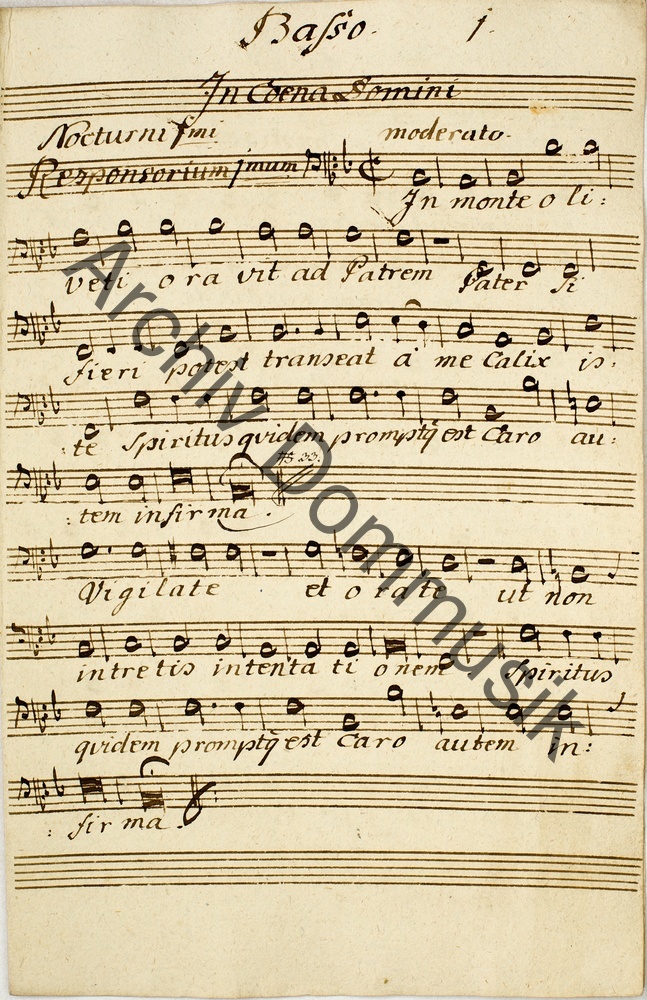 Basso. 1.
In Coena Domini
Nocturni 1mi moderato.
Responsorium 1mum
In monte o li:
veti o ra vit ad Patrem Pater si
fieri potest transeat a me Calix is:
:te Spiritus quidem promptq̃ est Caro au:
:tem infirma.
Vigilate et orate ut non
intretis intenta ti onem Spiritus
quidem promptq̃ est Caro autem in:
:firma.
Archiv Dommusik